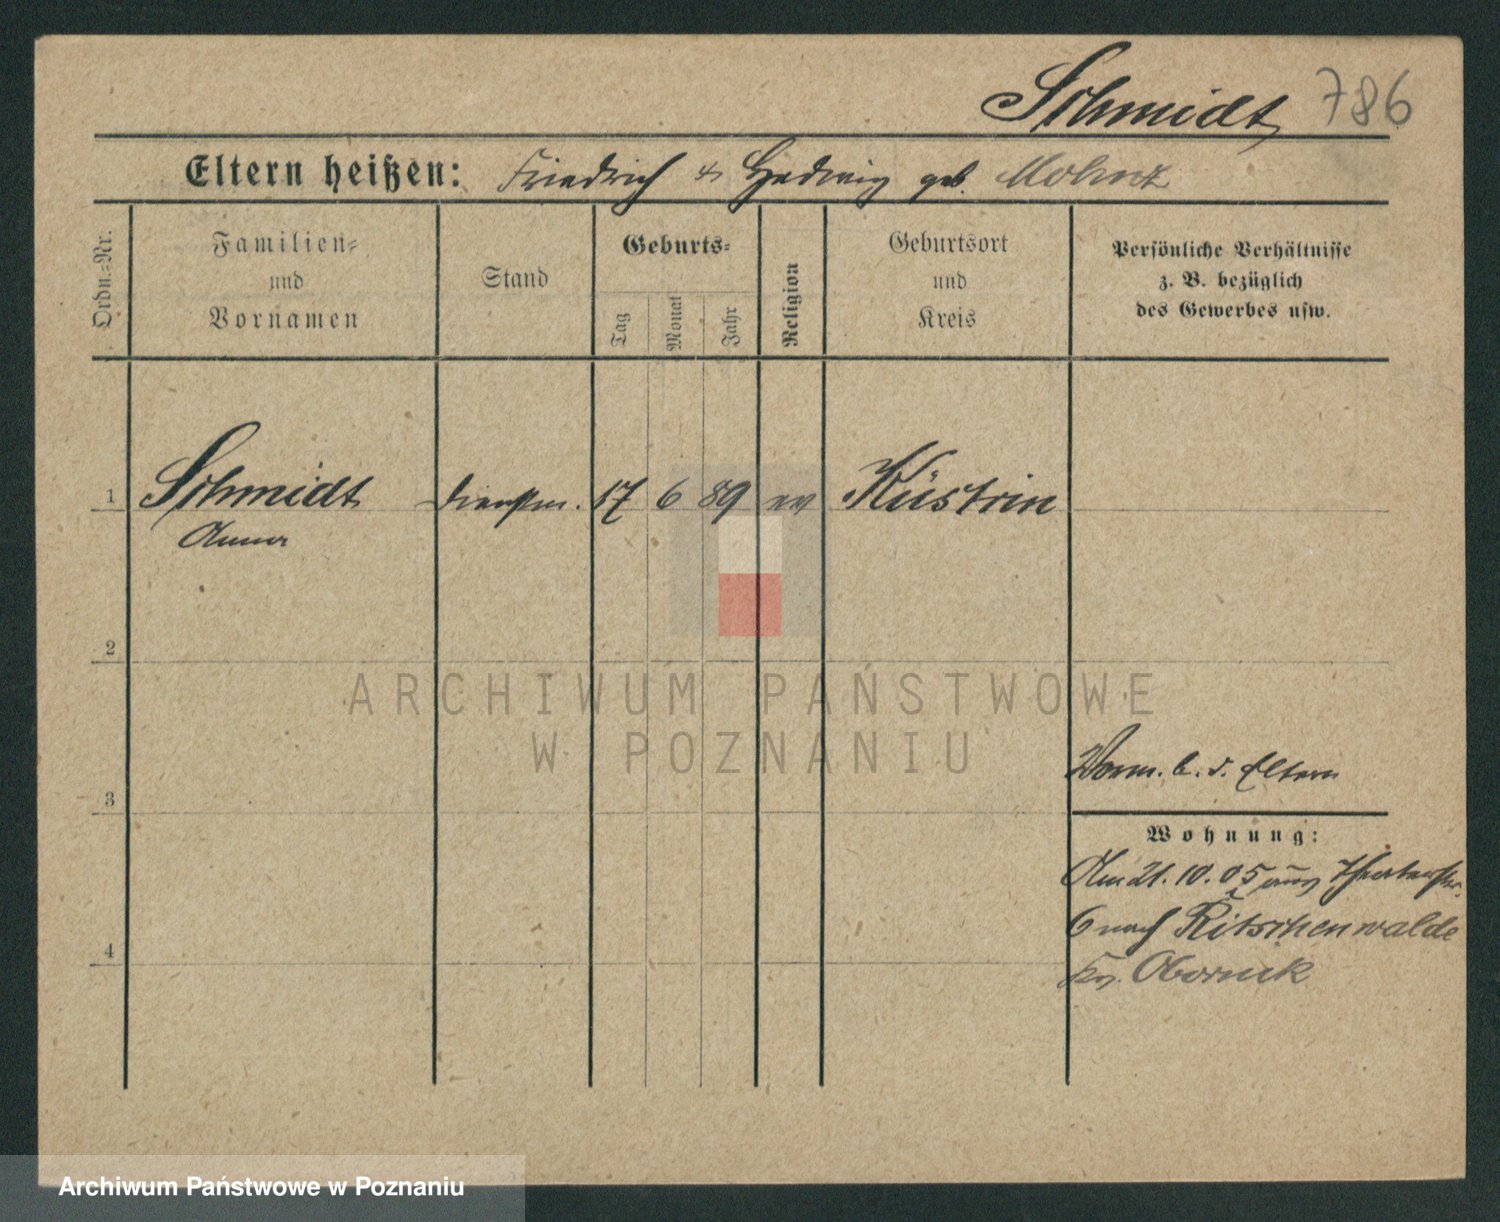 Schmidt 786
Eltern heißen: Friedrich & Hedwig geb.
Ordn.-Nr.
Familien-
und
Vornamen
Stand
Geburts-
Tag
Monat
Jahr
Religion
Geburtsort
und
Kreis
Persönliche Verhältnisse
z. B. bezüglich
des Gewerbes usw.
1 Schmidt Dienstm. 17 6 89 ev Küstrin
Anna
2
ARCHIWUM PAŃSTWOWE
W POZNANIU
b. d. Eltern
3
Wohnung:
Am 21. 10. 05 aus
6 nach Ritschenwalde
4
Kr. Obornik
Archiwum Państwowe w Poznaniu